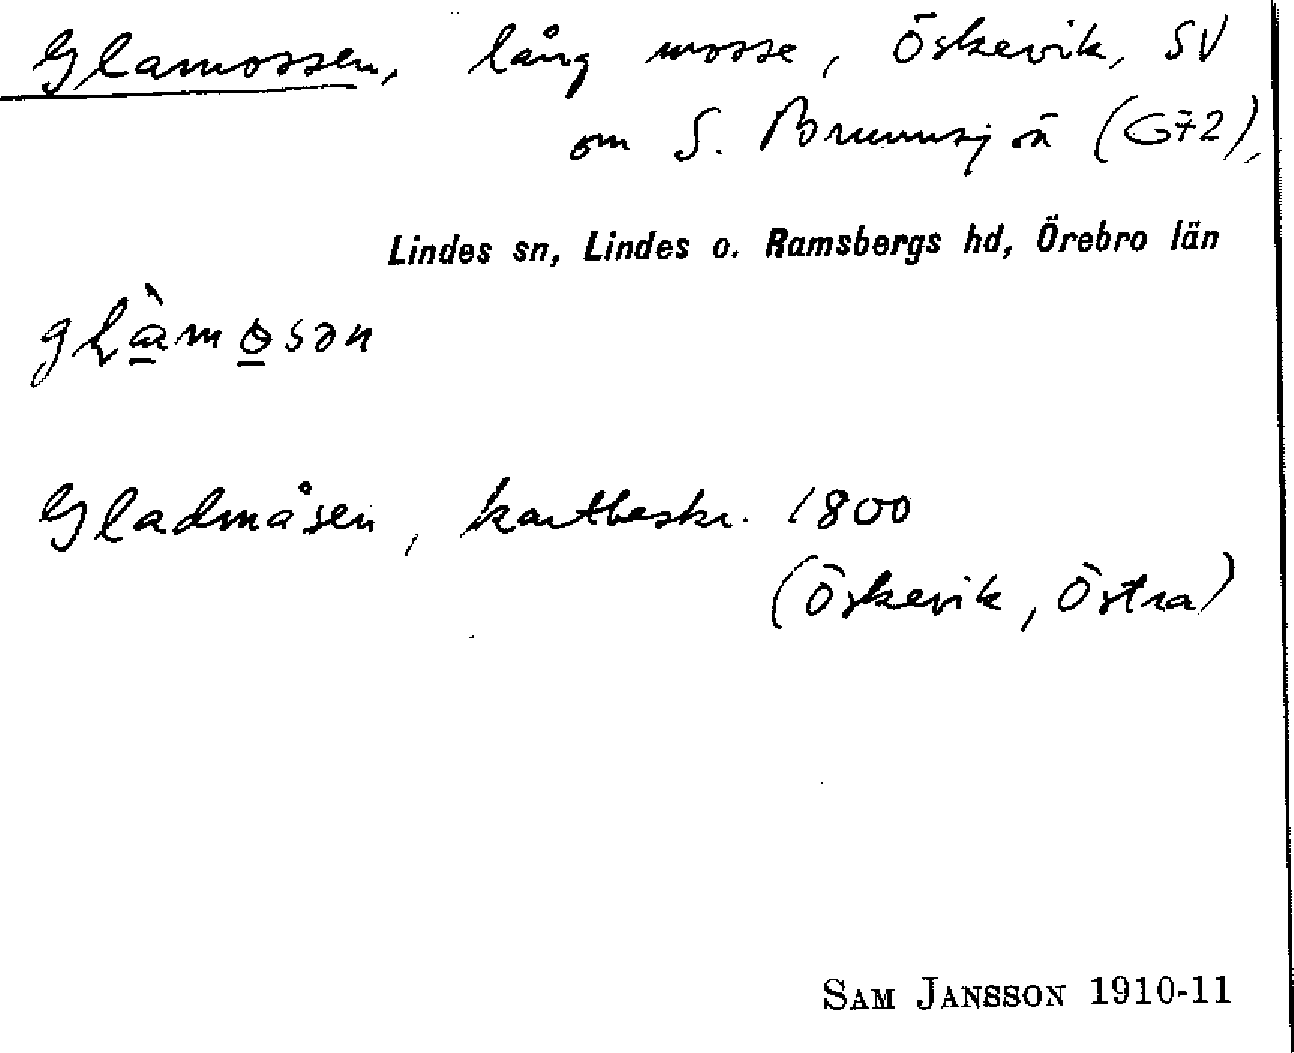 Glamossen, lång mosse, Öskevik, SV
om S. Brunnsjön (G72),
Lindes sn, Lindes o. Ramsbergs hd, Örebro län
Gladmåsen, kartbeskr. 1800
(Öskevik, Östra)
SAM JANSSON 1910-11